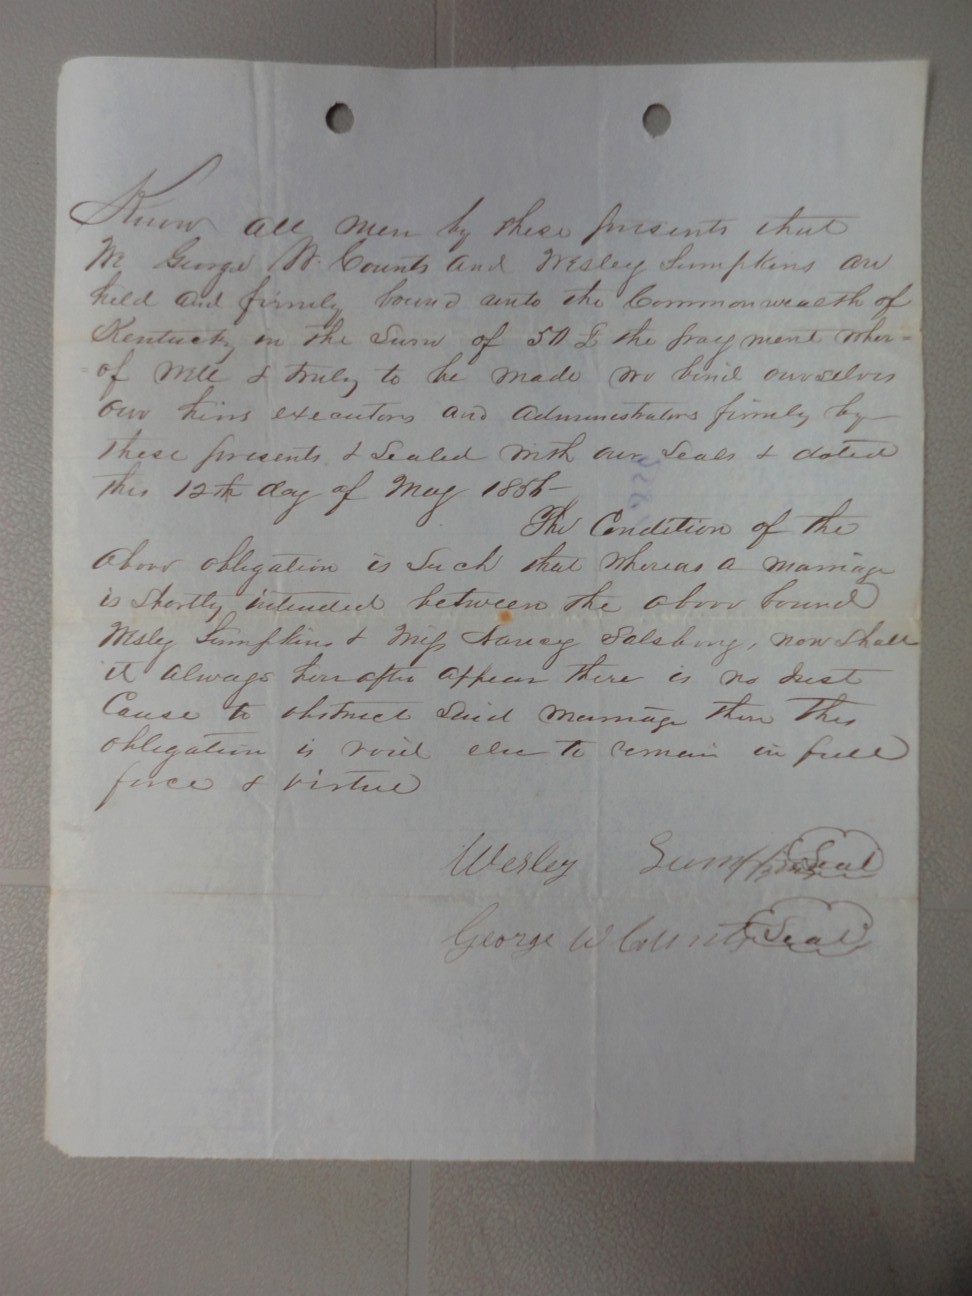 Know all men by these presents that
We George W. Counts and Wesley Lumpkins are
held and firmly bound unto the Commonwealth of
Kentucky in the Sum of 50 £ the payment wher=
=of well & truly to be made we bind ourselves
our hiers executors and administrators firmly by
these presents & Sealed with our Seals & dated
this 12th day of May
The Condition of the
above obligation is Such that whereas a marriage
is Shortly intended between the above bound
Wesly Lumpkins & Miss Nancy Salsbury, now Shall
it always herafter appear there is no Just
Cause to obstruct Said marriage then this
obligation is void else to remain in full
force & virtue
Wesley Lumpkins Seal
George W Counts Seal